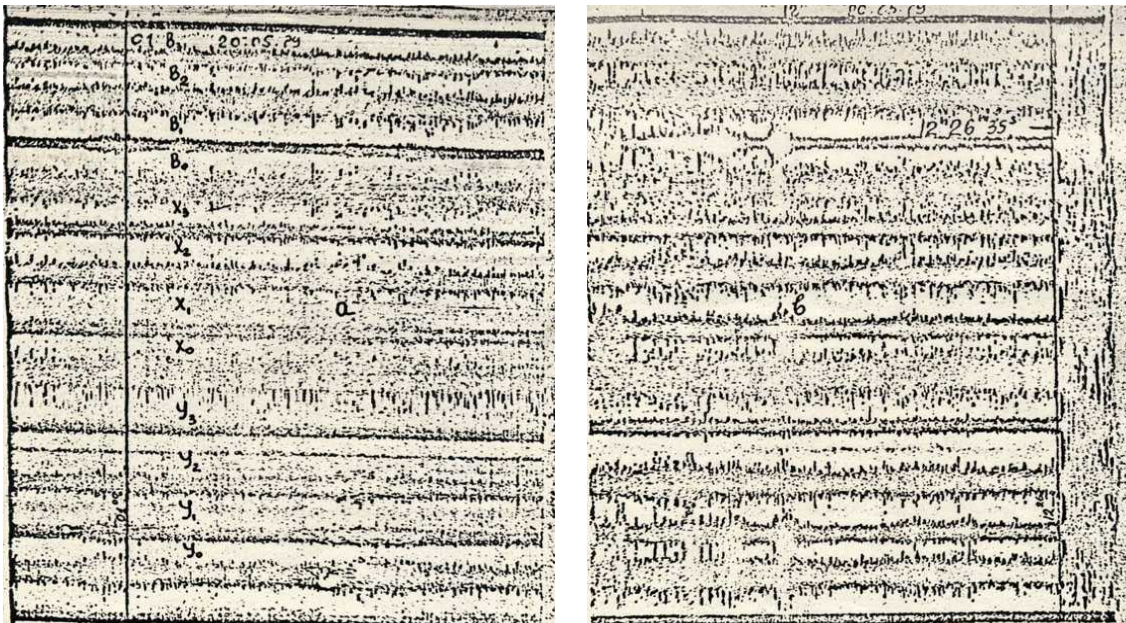 01 B₃ 20:05.79
B₂
B₁
B₀
X₃
X₂
X₁
a
X₀
y₃
y₂
y₁
y₀
12 20.05.79
12 26 35ˢ
b